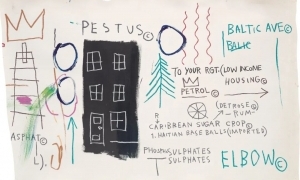 PESTUS©
BALTIC AVE©
BALTIC
TO YOUR RGT. (LOW INCOME
HOUSING ©
PETROL ©
(DETROSE©
—RUM—
R
CARIBBEAN SUGAR CROP©
1. HAITIAN BASE BALLS (IMPORTED)
PHOSPHUSULPHATES
SULPHATES
ASPHAT©
L).
ELBOW©